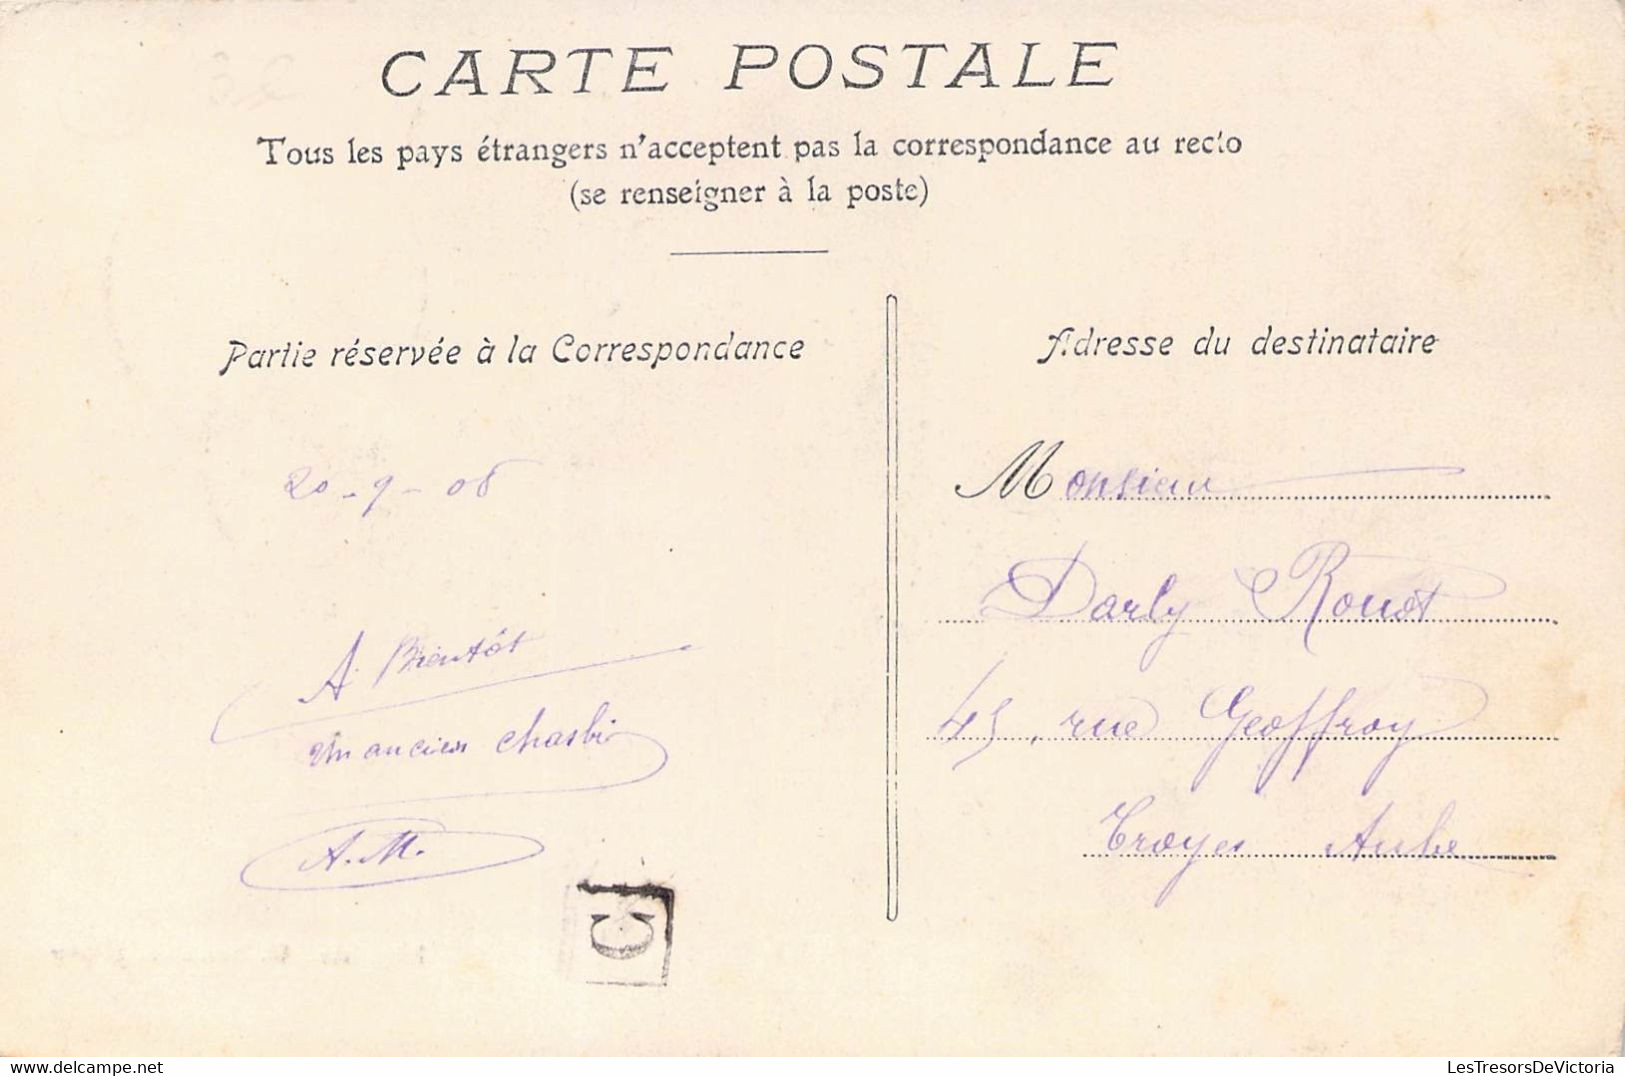 CARTE POSTALE
Tous les pays étrangers n'acceptent pas la correspondance au recto
(se renseigner à la poste)
Partie réservée à la Correspondance
20-9-06
A. Bientôt
un ancien
A.M.
C
Adresse du destinataire
Monsieur
Darly Rouot
45, rue Geoffroy
Troyes Aube
LesTresorsDeVictoria